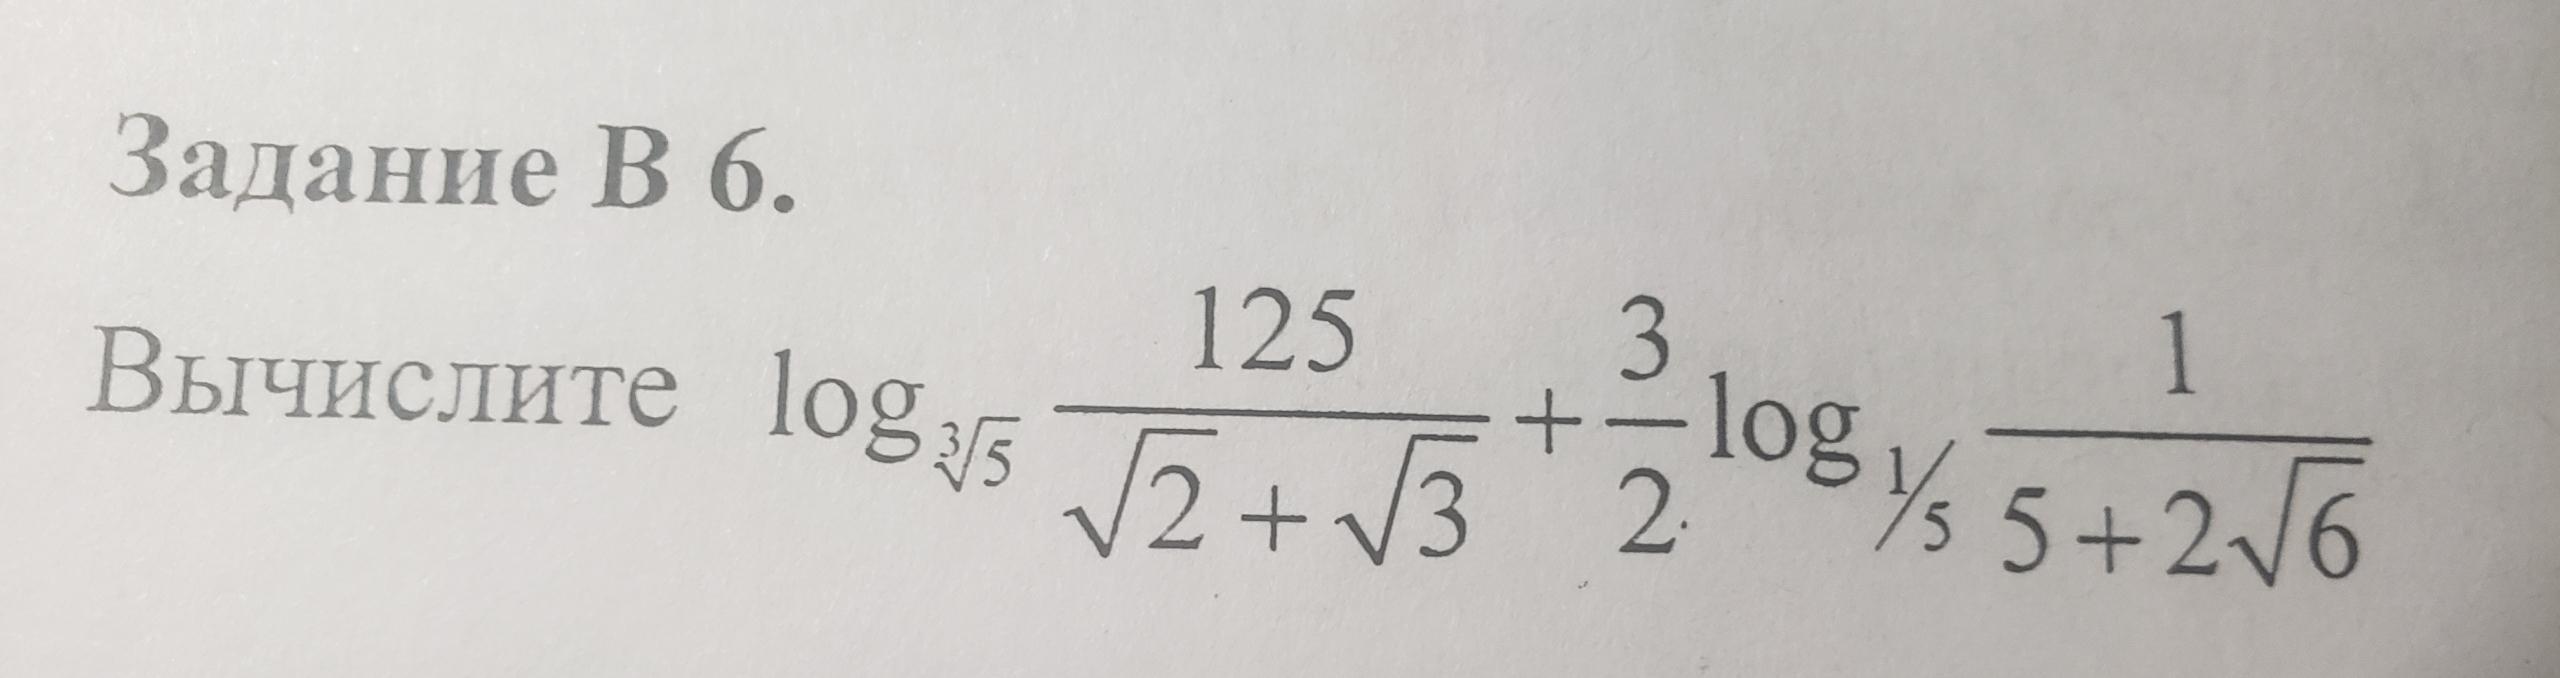 Задание В 6.
Вычислите log_{∛5} 125/(√2+√3) + 3/2 log_{1/5} 1/(5+2√6)